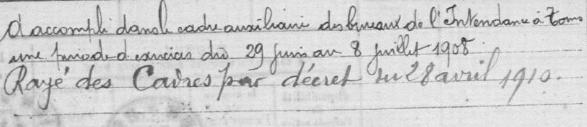 a accompli dans le cadre auxiliaire des bureaux de l'Intendance à Tours
une période d'exercices du 29 juin au 8 juillet 1908.
Rayé des Cadres par décret du 28 avril 1910.